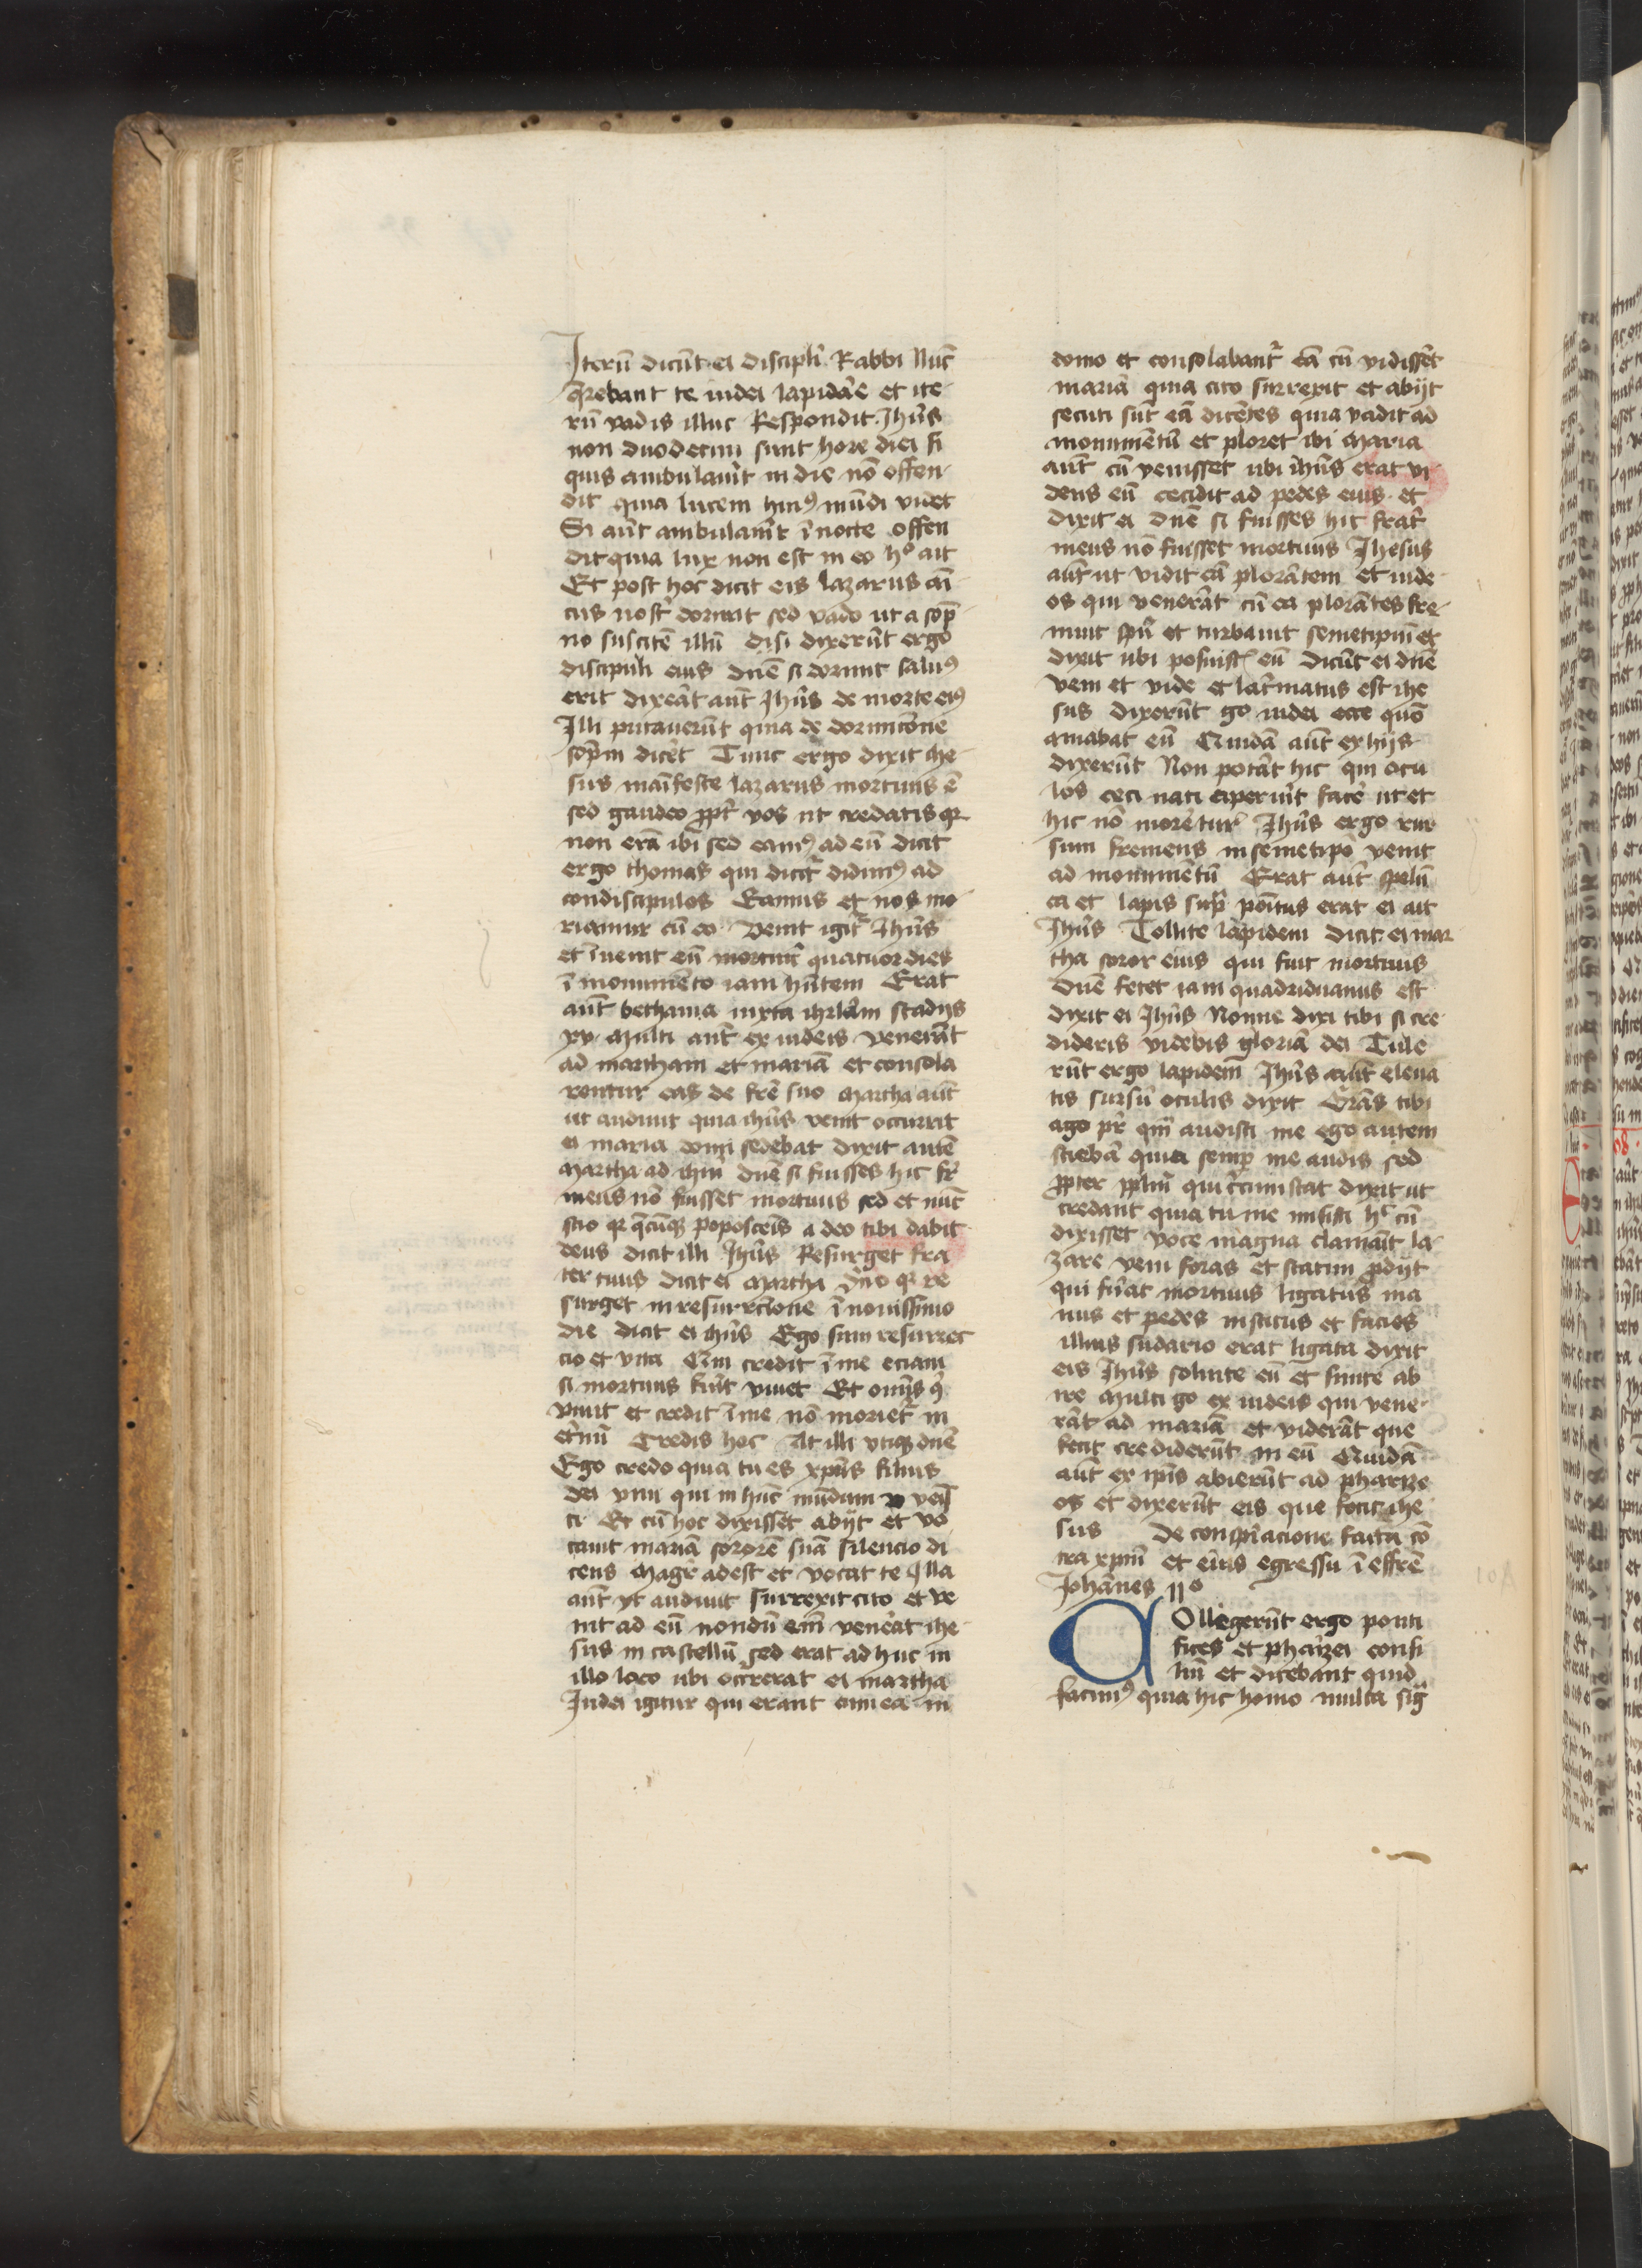 Iterū dicūt ei discipli Rabbi Nūc
q̄rebant te iudei lapidāe et ite
rū vadis illuc Respondit Ihūs
non duodecim sunt hore diei si
quis ambulaūit in die nō offen
dit quia lucem huiꝰ mūdi videt
Si aūt ambulaūit ī nocte offen
dit quia lux non est in eo hͦ ait
Et post hoc dicit eis lazarus ām
cus nost̄ dormit sed vado ut a sop̄
no suscitē illū disi dixerūt ergo
discipuli eius dnē si dormit saluꝰ
erit dixeāt aūt Ihūs de morte eiꝰ
Illi putauerūt quia de dormicōne
sop̄m dicēt Tunc ergo dixit ihe
sus māifeste lazarus mortuus ē
sed gaudeo p̄pt̄ vos ut credatis qꝛ
non erā ibi sed eamꝰ ad eū dicit
ergo thomas qui dicit̄ didimꝰ ad
condiscipulos Eamus et nos mo
riamur cū eo Venit igit̄ Ihūs
et īuenit eū mortuū quatuor dies
ī monumēto iam hn̄tem Erat
aūt bethania iuxta ihrlām stadijs
xv Multi aūt ex iudeis venerāt
ad martham et mariā et consola
rentur eas de frē suo Martha aūt
ut audiuit quia ihūs venit occurrit
ei maria domi sedebat dixit autē
Martha ad ihm̄ dnē si fuisses hic fr̄
meus nō fuisset mortuus sed et nūc
scio qꝛ q̄cūqꝫ poposceris a deo tibi dabit
deus dicit illi Ihūs Resurget fra
ter tuus dicit ei Martha scio qꝛ re
surget in resurrcīone ī nouissimo
die dicit ei ihūs Ego sum resurrec
cio et vita Qui credit ī me eciam
si mortuus fuīt viuet Et omīs q̄
viuit et credit ī me nō moriet̄ in
et̄nū Credis hoc At illi vtiqꝫ dnē
Ego credo quia tu es xp̄us filius
dei viui qui in hūc mūdum venis
ti Et cū hoc dixisset abijt et vo
cauit mariā sororē suā silencio di
cens Magr̄ adest et vocat te Illa
aūt vt audiuit surrexit cito et ve
nit ad eū nondū em̄ venēat ihe
sus in castellū sed erat ad huc in
illo loco ubi occ̄rrerat ei martha
Iudei igitur qui erant cum ea in
domo et consolabant̄ eā cū vidissēt
mariā quia cito surrexit et abijt
secuti sūt eā dicētes quia vadit ad
monumētū et ploret ibi Maria
aūt cū venisset ubi ihūs erat vi
dens eū cecidit ad pedes eius et
dixit ei dnē si fuisses hic frat̄
meus nō fuisset mortuus Ihesus
aūt ut vidit eā plorātem et iude
os qui venerāt cū ea plorātes fre
muit spū et turbauit semetipm̄ et
dixit ubi posuistꝭ eū dicūt ei dnē
veni et vide et lac̄matus est ihe
sus dixerūt go iudei ecce quō
amabat eū Quidā aūt ex hijs
dixerūt Non potāt hic qui ocu
los ceci nati aperuīt facē ut et
hic nō morēt̄ Ihūs ergo rur
sum fremens in semetipō venit
ad monumētū Erat aūt spelū
ca et lapis sup̄ pōitus erat ei ait
Ihūs Tollite lapidem dicit ei mar
tha soror eius qui fuit mortuus
Dnē fetet iam quadriduanus est
dixit ei Ihūs Nonne dixi tibi si cre
dideris videbis gloriā dei Tule
rūt ergo lapidem Ihūs aūt eleua
tis sursū oculis dixit Grās tibi
ago pr̄ qm̄ audisti me ego autem
sciebā quia semp̄ me audis sed
p̄pter pplm̄ qui c̄cumstat dixit ut
credant quia tu me misisti hͨ cū
dixisset voce magna clamaūit la
zare veni foras et statim p̄dijt
qui fūat mortuus ligatus ma
nus et pedes institis et facies
illius sudario erat ligata dixit
eis Ihūs soluite eū et sinite ab
ire Multi go ex iudeis qui vene
rāt ad mariā et viderāt que
fecit crediderūt in eū Quidā
aūt ex ip̄is abierūt ad pharize
os et dixerūt eis que fecit ihe
sus De conspiracione facta cō
tra xpm̄ et eius egressu ī effrē
Iohānes 11ͦ
COllegerūt ergo ponti
fices et pharizei consi
liū et dicebant quid
facimꝰ quia hic homo multa siḡ